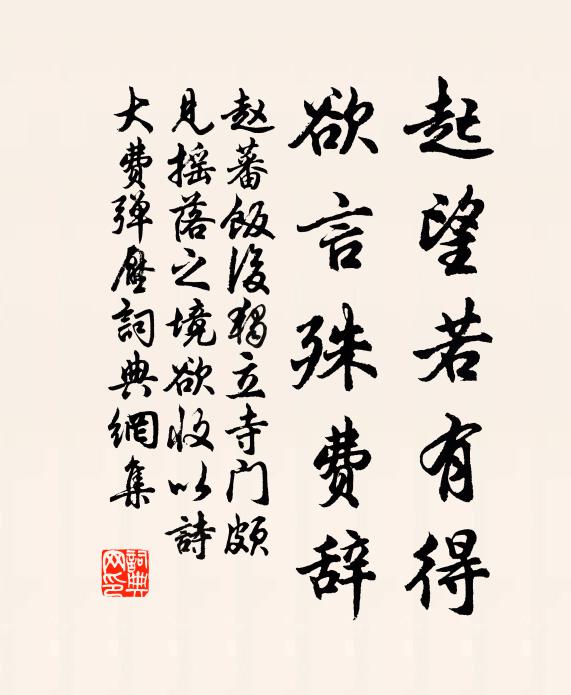 起望若有得
欲言殊费辞
赵蕃饭后独立寺门颇
见摇落之境欲收以詩
大费弹壓詞典網集
詞典网印